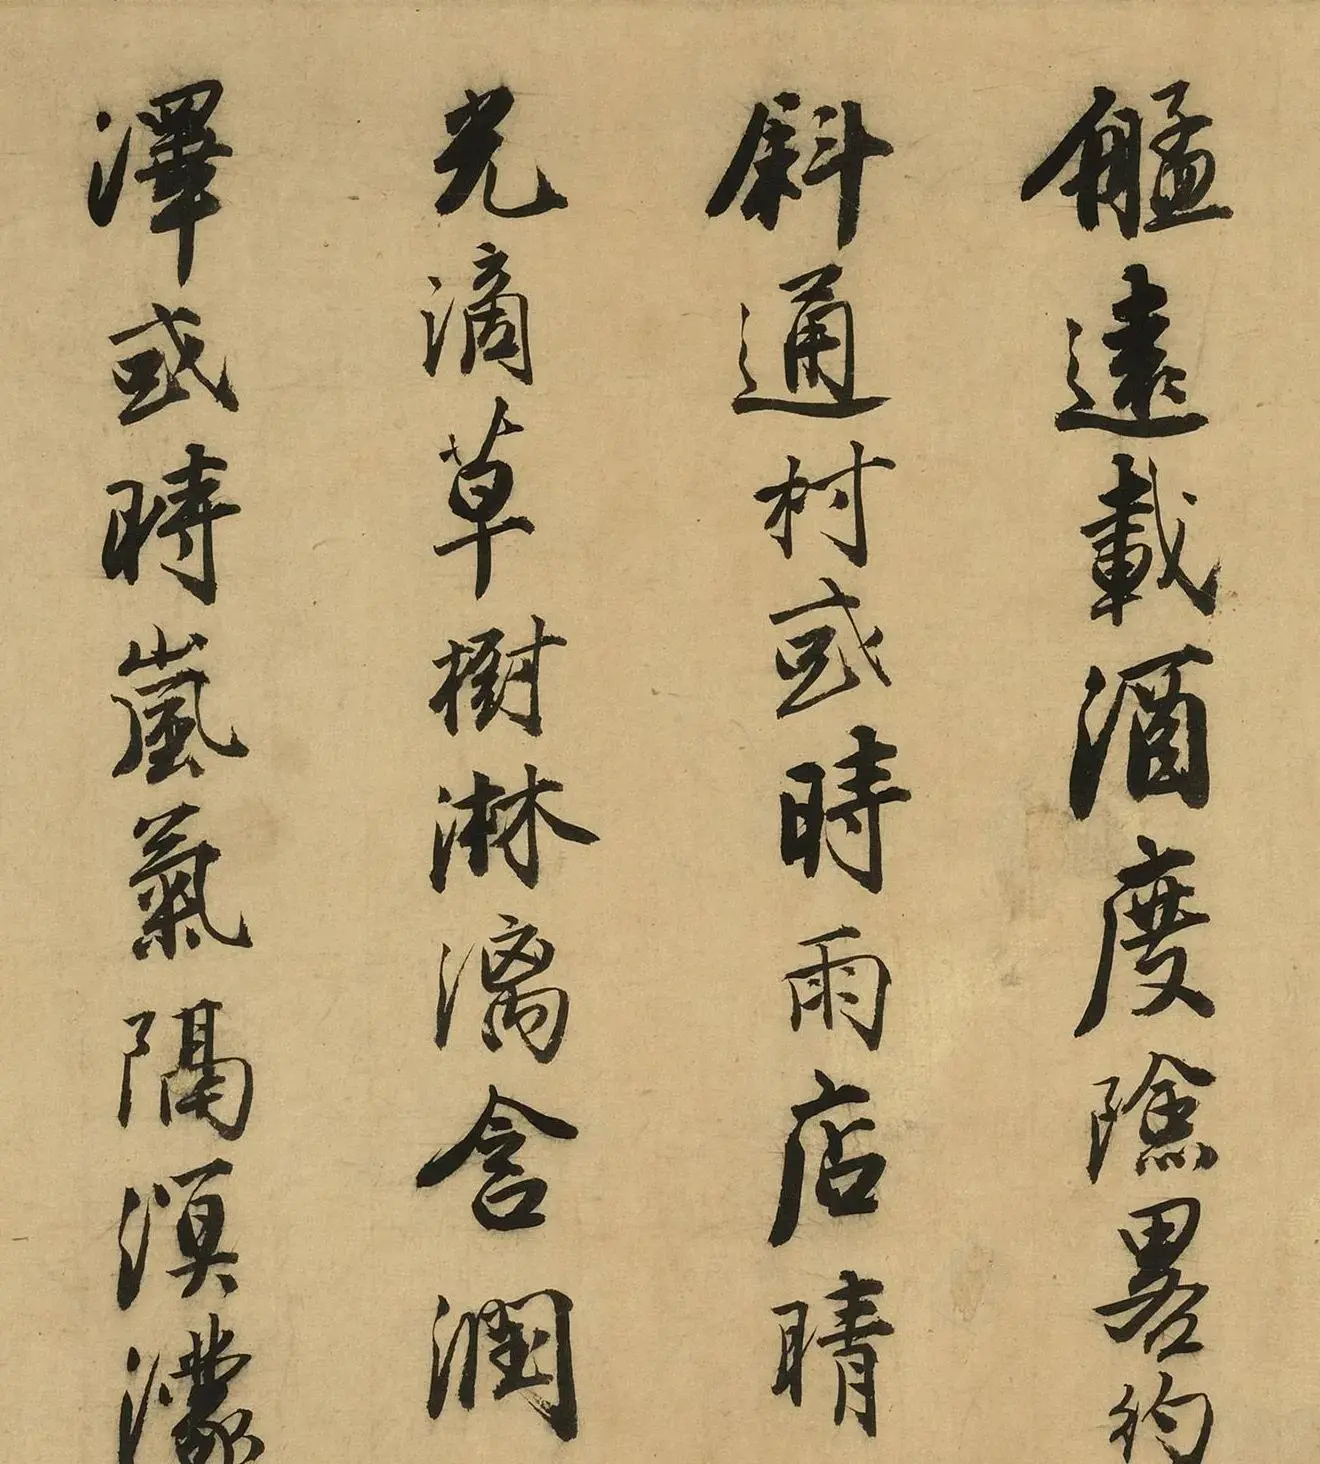 艋遠載酒度陰畧彴
斜通村或時雨店晴
光滴草樹淋漓含潤
澤或時嵐氣隔溟濛